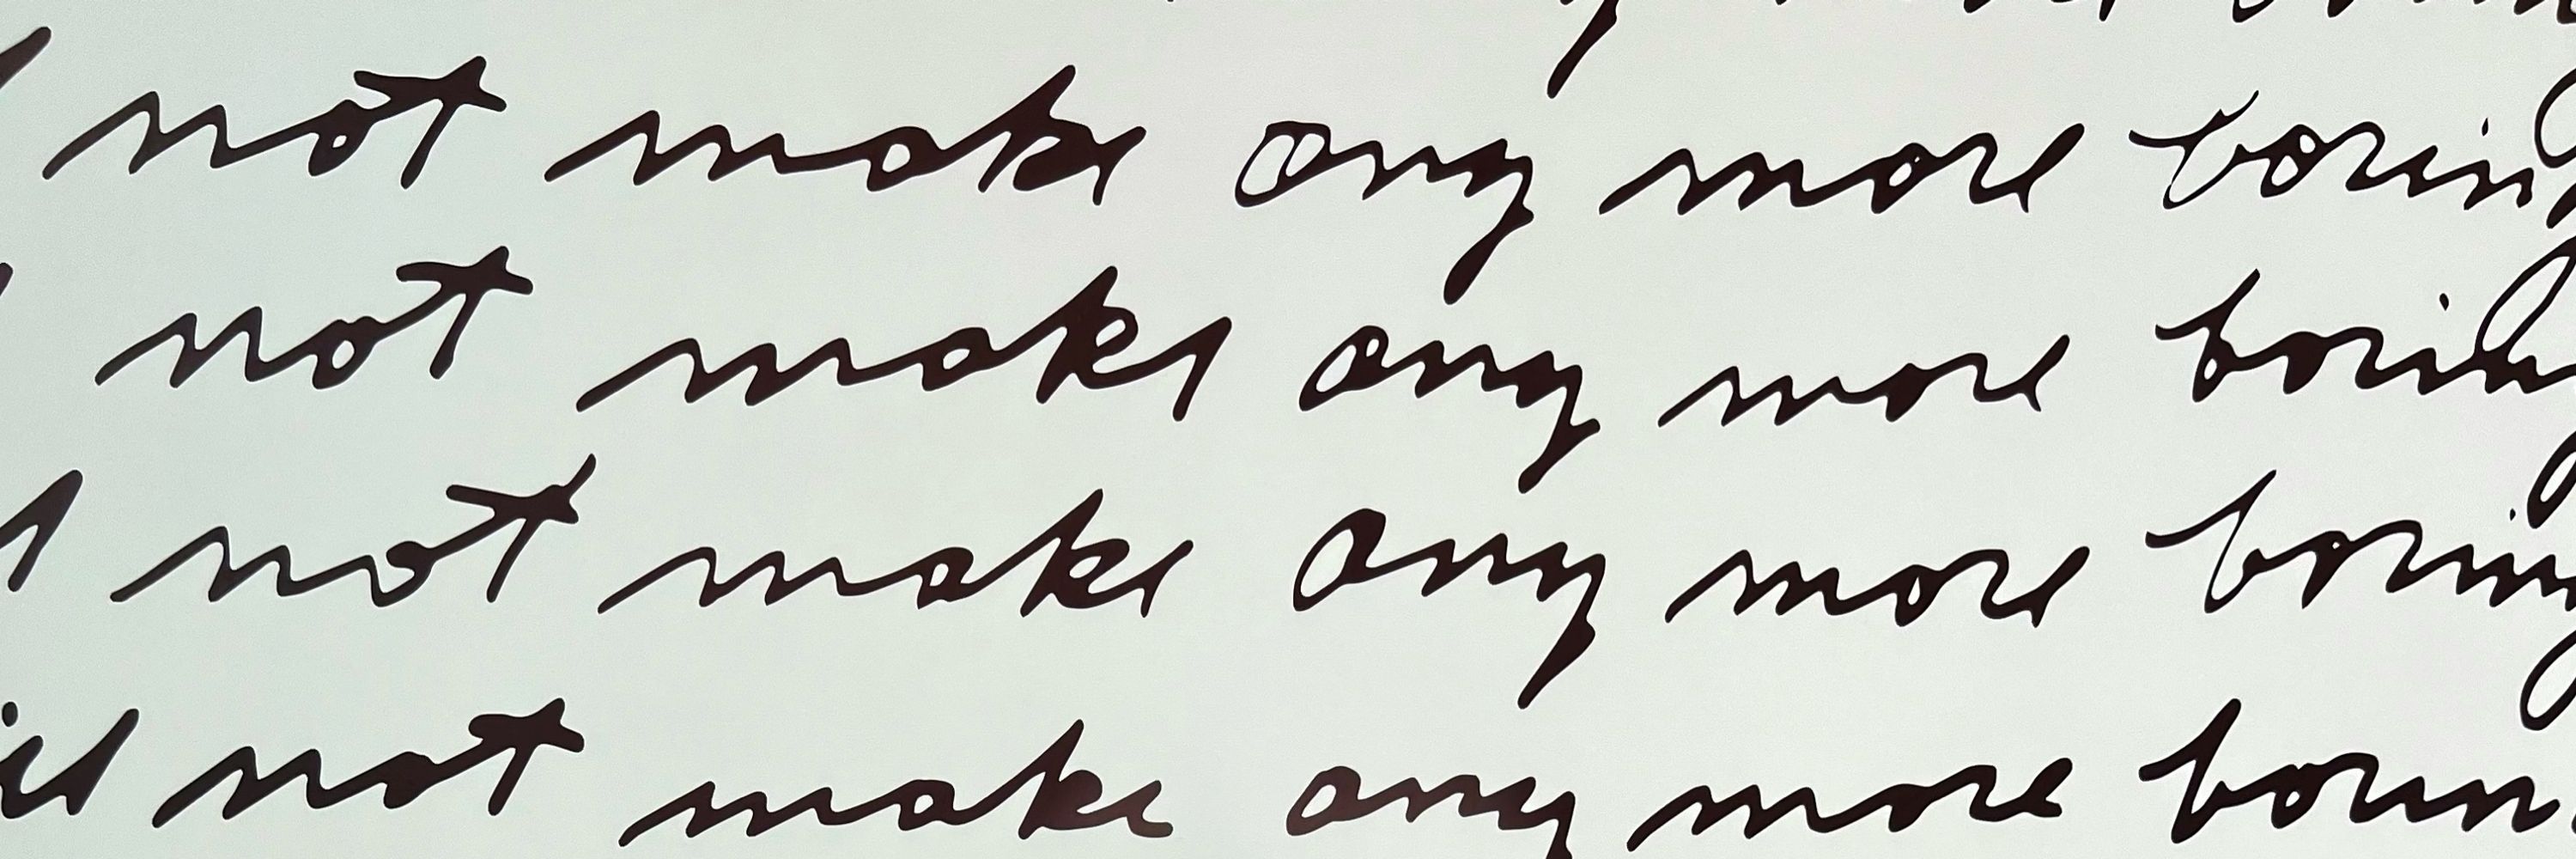 not make any more boring
not make any more boring
not make any more boring
not make any more borin